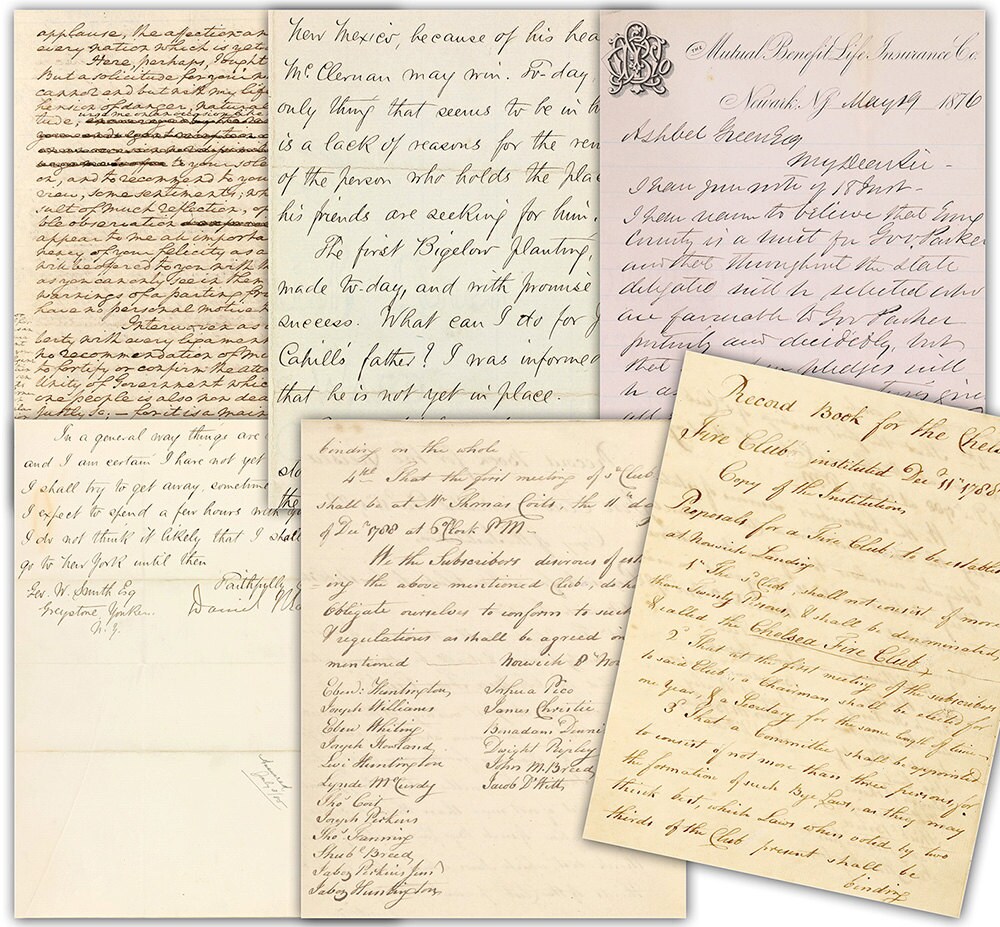 applause, the affection an
every nation which is yet
Here, perhaps, I ought
But a solicitude for your
cannot end but with my life
hension of danger, natural
tude, urge me on an occasion like
to your sole
on, and to recommend to you
view, some sentiments; wh
sult of much reflection, of
ble observation
appear to me all importa
nency of your felicity as a
will be offered to you with th
as you can only see in them
warnings of a parting fr
have no personal motive
Interwoven as
berty with every ligament
no recommendation of m
to fortify or confirm the atta
Unity of Government which
one people is also now dea
justly so, — for it is a main
New Mexico, because of his hea
McClernan may win. To-day
only thing that seems to be in h
is a lack of reasons for the rem
of the person who holds the plac
his friends are seeking for him.
The first Bigelow planting,
made to-day, and with promise
success. What can I do for J
Cahill's father? I was informed
that he is not yet in place.
the
The Mutual Benefit Life Insurance Co.
Newark, NJ May 19 1876
Ashbel Green Esq
My Dear Sir -
I have your note of 18 Inst -
I have reason to believe that
County is a unit for Gov Parker
and that throughout the State
delegates will be selected who
are favorable to Gov Parker
positively and decidedly, but
that pledges will
In a general way things are
and I am certain I have not yet
I shall try to get away, sometime
I expect to spend a few hours with
I do not think it likely that I shall
go to New York until then
Faithfully
Geo. W. Smith Esq
Daniel
Greystone Yonkers
N.Y.
binding on the whole
4th That the first meeting of sd Club
shall be at Mr Thomas Coits, the 11th da
of Decr 1788 at 6 oClock P.M -
We the Subscribers desirous of esta
ing the above mentioned Club, do he
Obligate ourselves to conform to such
regulations as shall be agreed on
mentioned Norwich 8th Nov
Ebenr Huntington
Joseph Williams
Eben Whiting
Joseph Howland
Levi Huntington
Lynde McCurdy
Thos Coit
Joseph Perkins
Thos Fanning
Shubl Breed
Jabez Perkins Junr
Jabez Huntington
Joshua Pico
James Christie
Benadam Denni
Dwight Ripley
John M. Breed
Jacob D Witt
Record Book for the Chels
Fire Club instituted Decr 11th 1788
Copy of the Institution,
Proposals for a Fire Club to be establis
at Norwich Landing
1st The sd Club, shall not consist of more
than Twenty Persons, & shall be denominated
& called the Chelsea Fire Club
2 That at the first meeting of the subscribers
to said Club, a Chairman shall be elected for
one year, & a Secretary for the same length of time -
3 That a Committee shall be appointed
to consist of not more than three persons, for
the formation of such Bye Laws, as they may
think best, which Laws when voted by two
thirds of the Club present shall be
binding